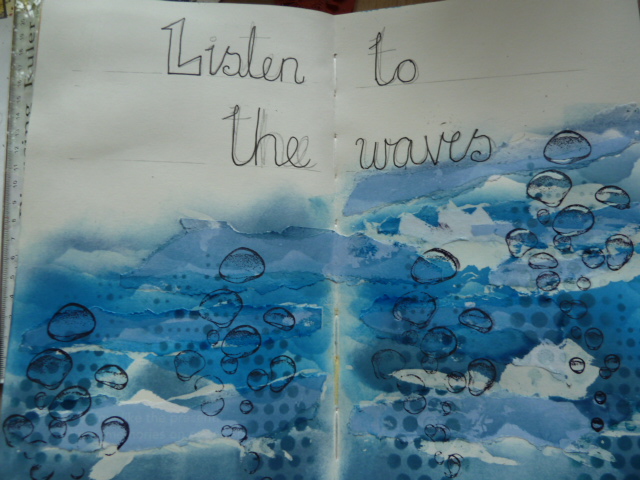 Listen to
the waves